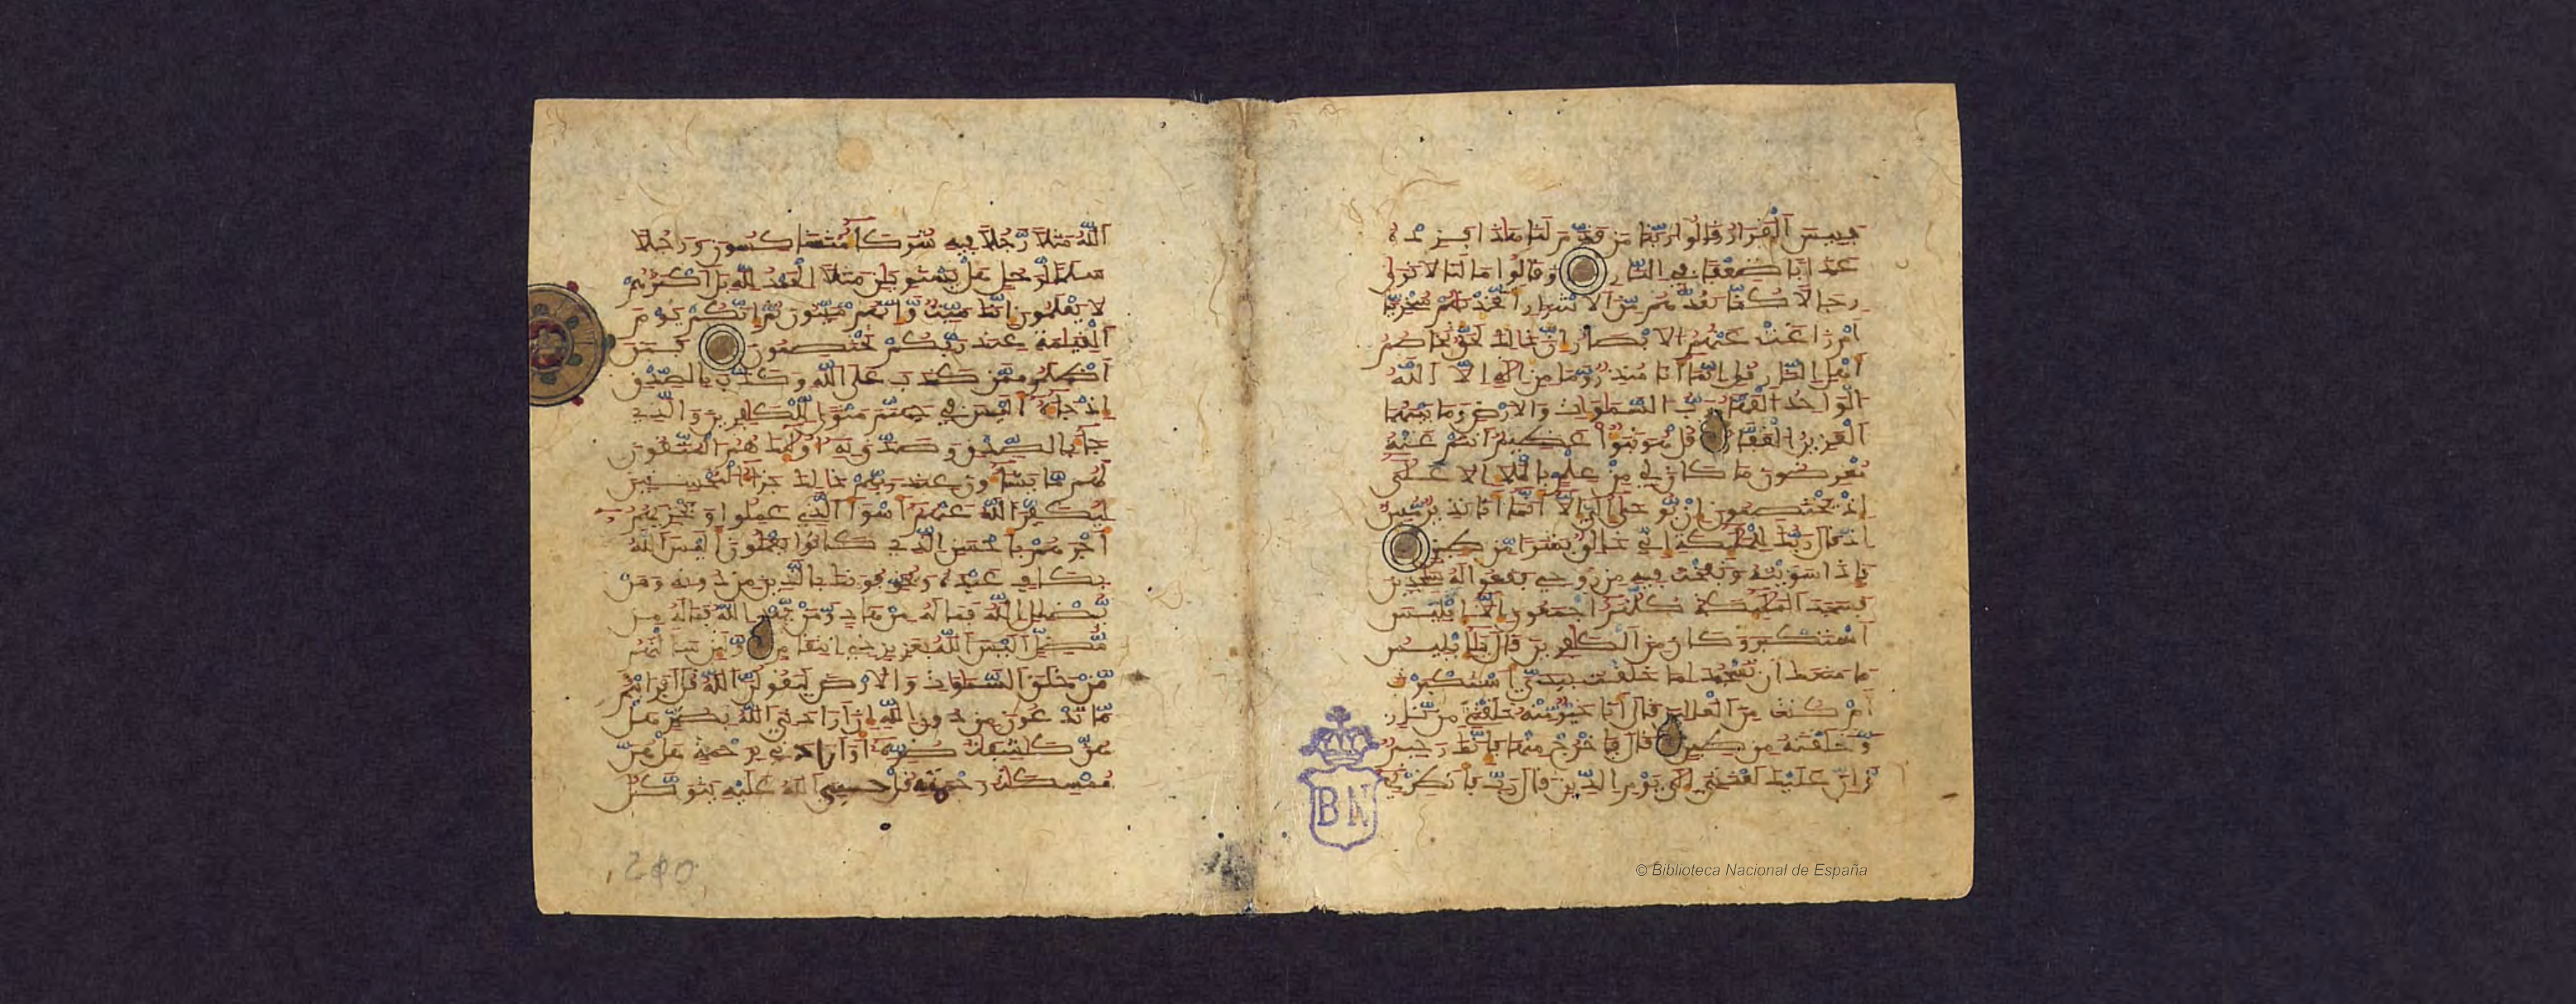 فبيس القرار قالوا ربنا من قدم لنا هذا فزده
عذابا ضعفا في النار وقالوا ما لنا لا نرى
رجالا كنا نعدهم من الاشرار اتخذنهم سخريا
أم زاغت عنهم الابصار إن ذلك لحق تخاصم
أهل النار قل إنما أنا منذر وما من إله إلا الله
الواحد القهار رب السموات والارض وما بينهما
العزيز الغفار قل هو نبؤا عظيم أنتم عنه
معرضون ما كان لي من علم بالملإ الاعلى
إذ يختصمون إن يوحى إلي إلا أنما أنا نذير مبين
إذ قال ربك للملئكة إني خالق بشرا من طين
فإذا سويته ونفخت فيه من روحي فقعوا له سجدين
فسجد الملئكة كلهم أجمعون إلا إبليس
استكبر وكان من الكفرين قال يإبليس
ما منعك أن تسجد لما خلقت بيدي استكبرت
أم كنت من العالين قال أنا خير منه خلقتني من نار
وخلقته من طين قال فاخرج منها فإنك رجيم
وإن عليك لعنتي إلى يوم الدين قال رب فأنظرني
الله مثلا رجلا فيه شركاء متشاكسون ورجلا
سلما لرجل هل يستوين مثلا الحمد لله بل أكثرهم
لا يعلمون إنك ميت وإنهم ميتون ثم إنكم يوم
القيمة عند ربكم تختصمون فمن
أظلم ممن كذب على الله وكذب بالصدق
إذ جاءه أليس في جهنم مثوى للكفرين والذي
جاء بالصدق وصدق به أولئك هم المتقون
لهم ما يشاءون عند ربهم ذلك جزاء المحسنين
ليكفر الله عنهم أسوأ الذي عملوا ويجزيهم
أجرهم بأحسن الذي كانوا يعملون أليس الله
بكاف عبده ويخوفونك بالذين من دونه ومن
يضلل الله فما له من هاد ومن يهد الله فما له من
مضل أليس الله بعزيز ذي انتقام ولئن سألتهم
من خلق السموات والارض ليقولن الله قل أفرأيتم
ما تدعون من دون الله إن أرادني الله بضر هل
هن كشفت ضره أو أرادني برحمة هل هن
ممسكت رحمته قل حسبي الله عليه يتوكل
240
BN
© Biblioteca Nacional de España